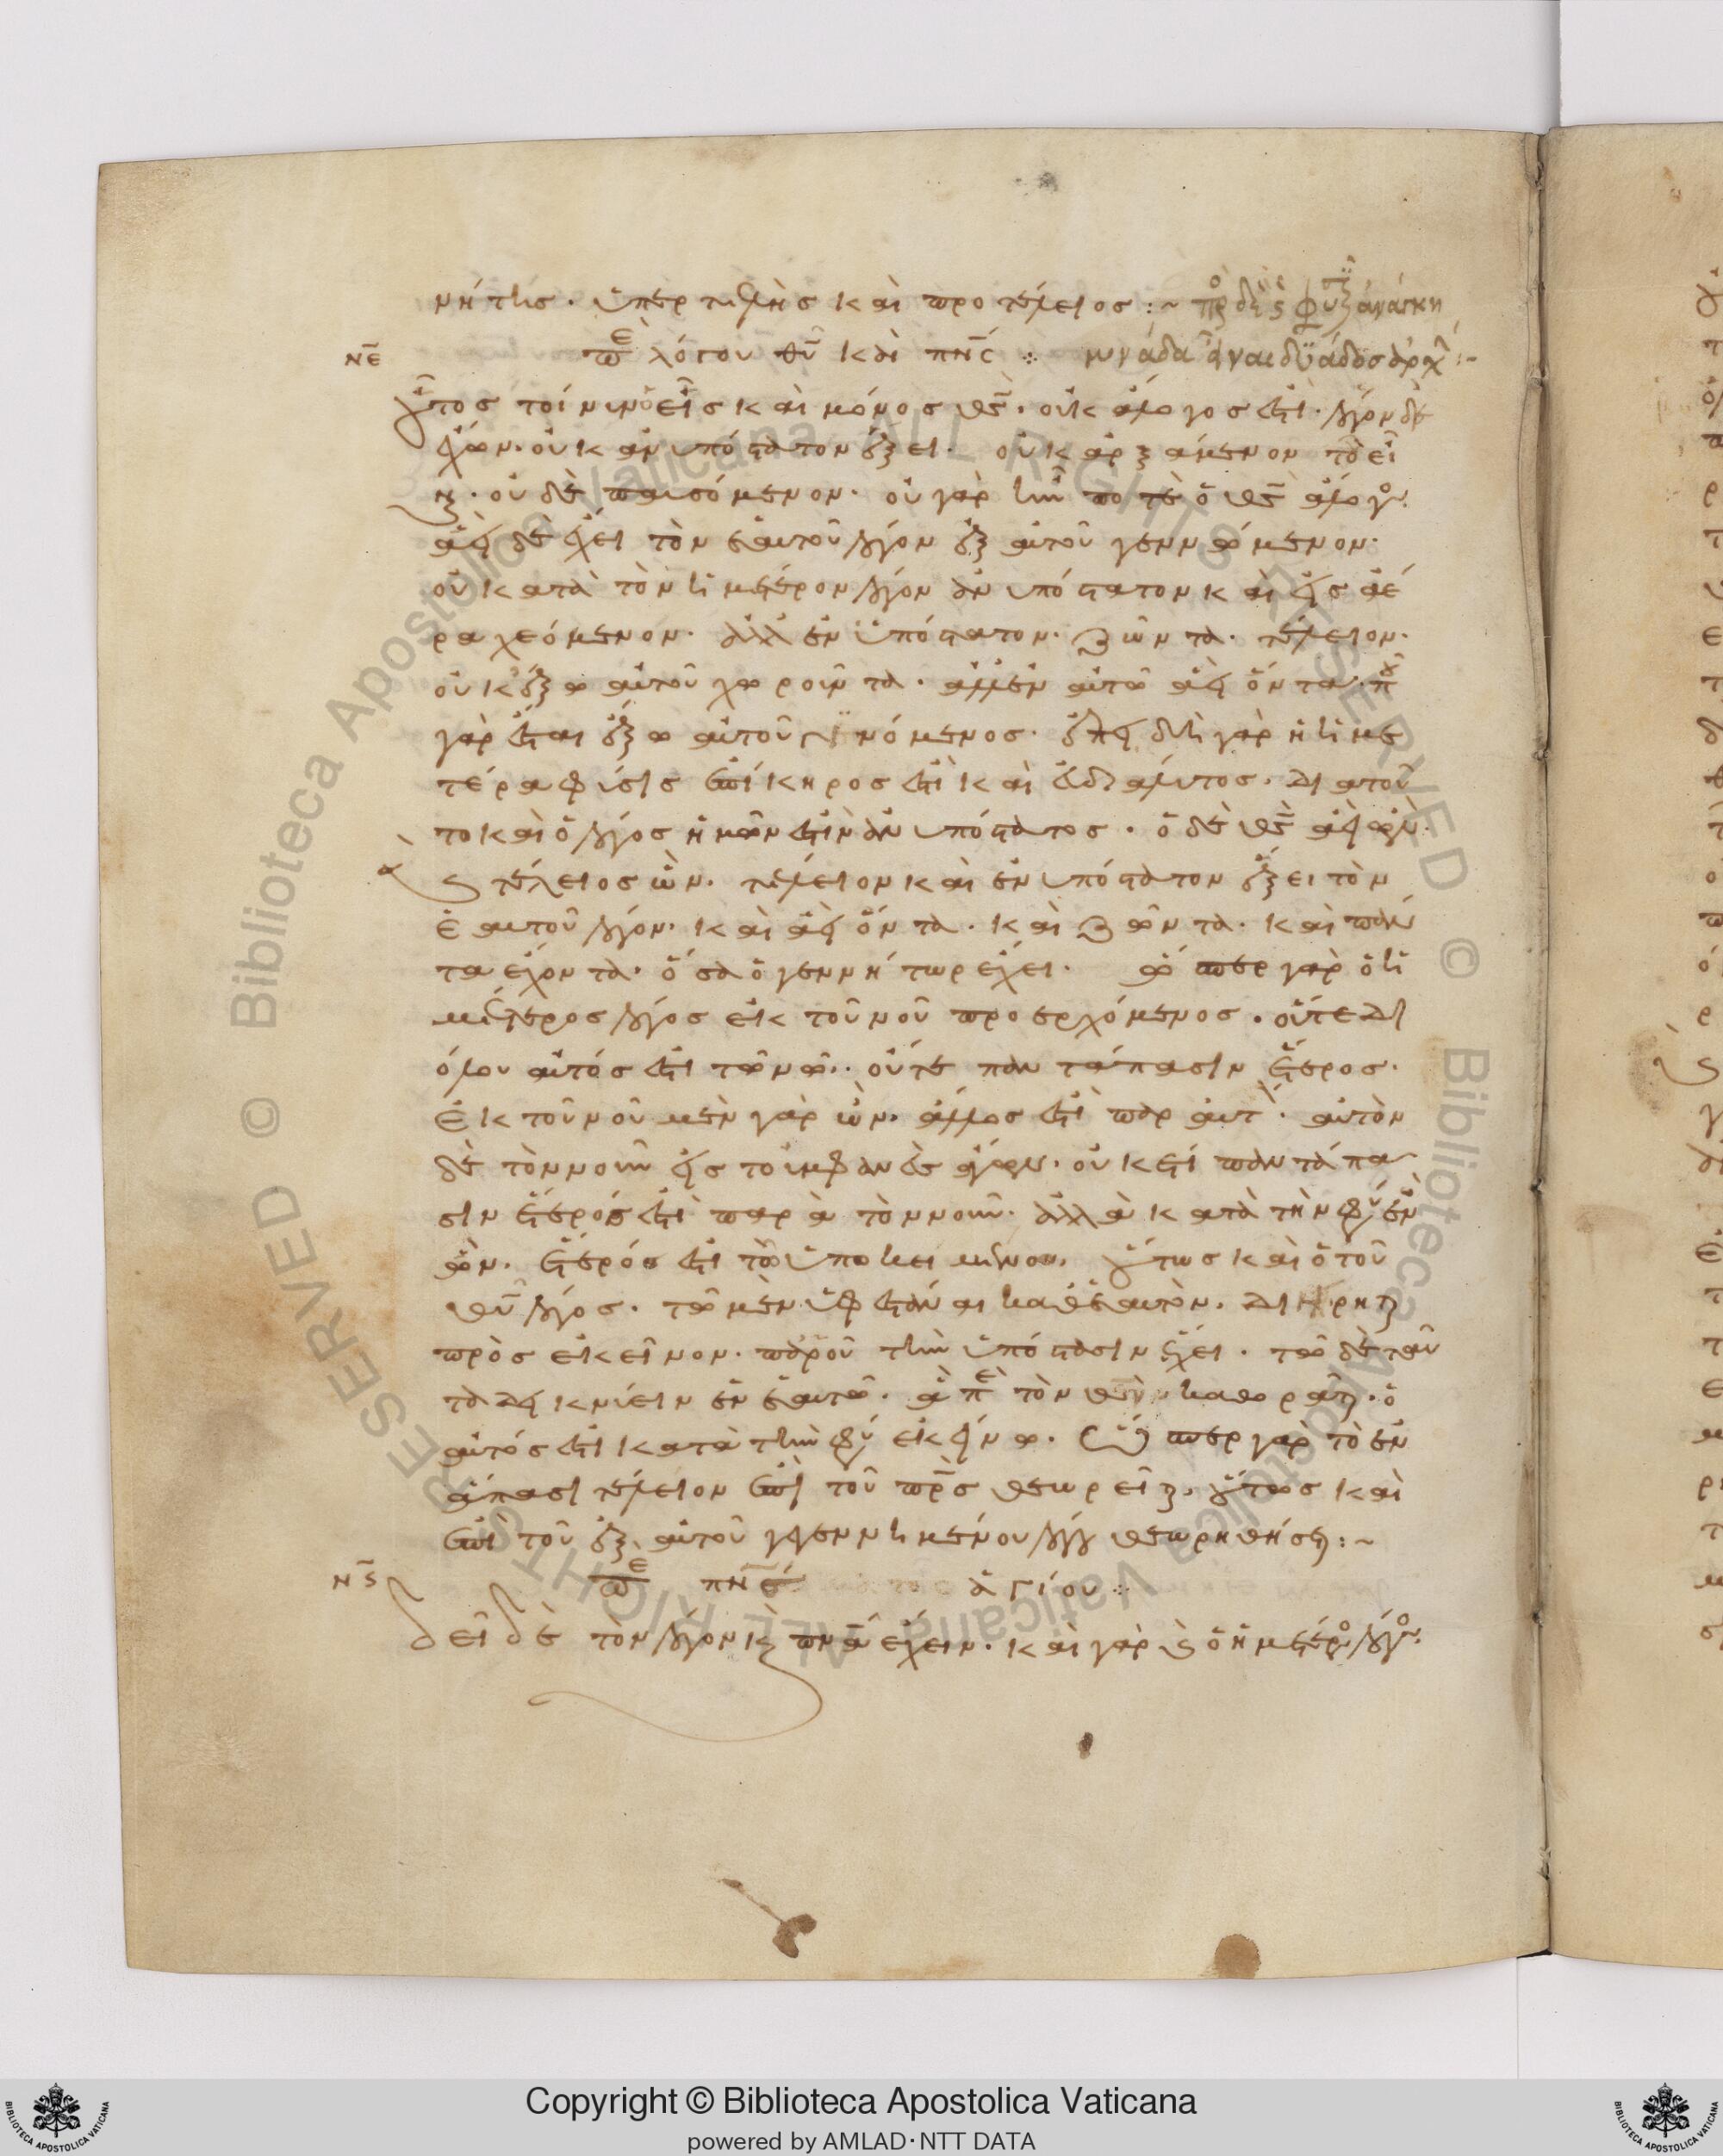 μήτις. ὑπερτελὴς καὶ προτέλειος :~ πρὸ δὲ φύσ ἀνάγκη
ΝΕ περὶ λόγου θῦ καὶ πνς ⁘ μονάδα εἶναι δυάδος ἀρχ :~
οὗτος τοίνυν ὁ εἷς καὶ μόνος θς. οὐκ ἄλογος ἐστί. λόγον δὲ
ἔχων. οὐκ ἀνυπόστατον ἕξει. οὐκ ἀρξάμενον τοῦ εἶ
ναι. οὐδὲ παυσόμενον. οὐ γὰρ ἦν ποτὲ ὁ θς ἄλογος.
ἀεὶ δὲ ἔχει τὸν ἑαυτοῦ λόγον ἐξ αὐτοῦ γεννώμενον.
οὐ κατὰ τὸν ἡμέτερον λόγον ἀνυπόστατον καὶ εἰς ἀέ
ρα χεόμενον. ἀλλ' ἐνυπόστατον. ζῶντα. τέλειον.
οὐκ ἔξω αὐτοῦ χωροῦντα. ἀλλ' ἐν αὐτῶ ἀεὶ ὄντα. ποῦ
γὰρ ἔσται ἔξω αὐτοῦ γινόμενος. ἐπειδὴ γὰρ ἡ ἡμε
τέρα φύσις ἐπίκηρος ἐστὶ καὶ εὐδιάλυτος. διατοῦ
το καὶ ὁ λόγος ἡμῶν ἐστὶν ἀνυπόστατος. ὁ δὲ θς ἀεὶ ὢν.
καὶ τέλειος ὢν. τέλειον καὶ ἐνυπόστατον ἕξει τὸν
ἑαυτοῦ λόγον. καὶ ἀεὶ ὄντα. καὶ ζῶντα. καὶ πάν
τα ἔχοντα. ὅσα ὁ γεννήτωρ ἔχει. ὥσπερ γὰρ ὁ ἡ
μέτερος λόγος ἐκ τοῦ νοῦ προερχόμενος. οὔτε δι
όλου αὐτός ἐστι τῶ νῶ. οὔτε παντάπασιν ἕτερος.
ἐκ τοῦ νοῦ μὲν γὰρ ὢν. ἄλλος ἐστὶ παρ αὐτ. αὐτὸν
δὲ τὸν νοῦν εἰς τοὐμφανὲς ἄγων. οὐκέτι παντάπα
σιν ἕτερός ἐστι παρὰ τὸν νοῦν. ἀλλὰ κατὰ τὴν φύσιν ἓν
ὢν. ἕτερός ἐστι τῶ ὑποκειμένω. οὕτως καὶ ὁ τοῦ
θῦ λόγος. τῶ μὲν ὑφεστάναι καθ' ἑαυτὸν. διήρηται
πρὸς ἐκεῖνον. παρ' οὗ τὴν ὑπόστασιν ἔχει. τῶ δὲ ταῦ
τα δεικνύειν ἐν ἑαυτῶ. ἃ περὶ τὸν θν καθορᾶται. ὁ
αὐτός ἐστι κατὰ τὴν φύ ἐκείνω. ὥσπερ γὰρ τὸ ἐν
ἅπασι τέλειον ἐπὶ τοῦ πρς θεωρεῖται. οὕτως καὶ
ἐπὶ τοῦ ἐξ αὐτοῦ γεγεννημένου λόγου θεωρηθήσεται :~
ΝϚ περὶ πνς ἁγίου ⁘
δεῖ δὲ τὸν λόγον καὶ πνα ἔχειν. καὶ γὰρ καὶ ὁ ἡμέτερος λόγος.